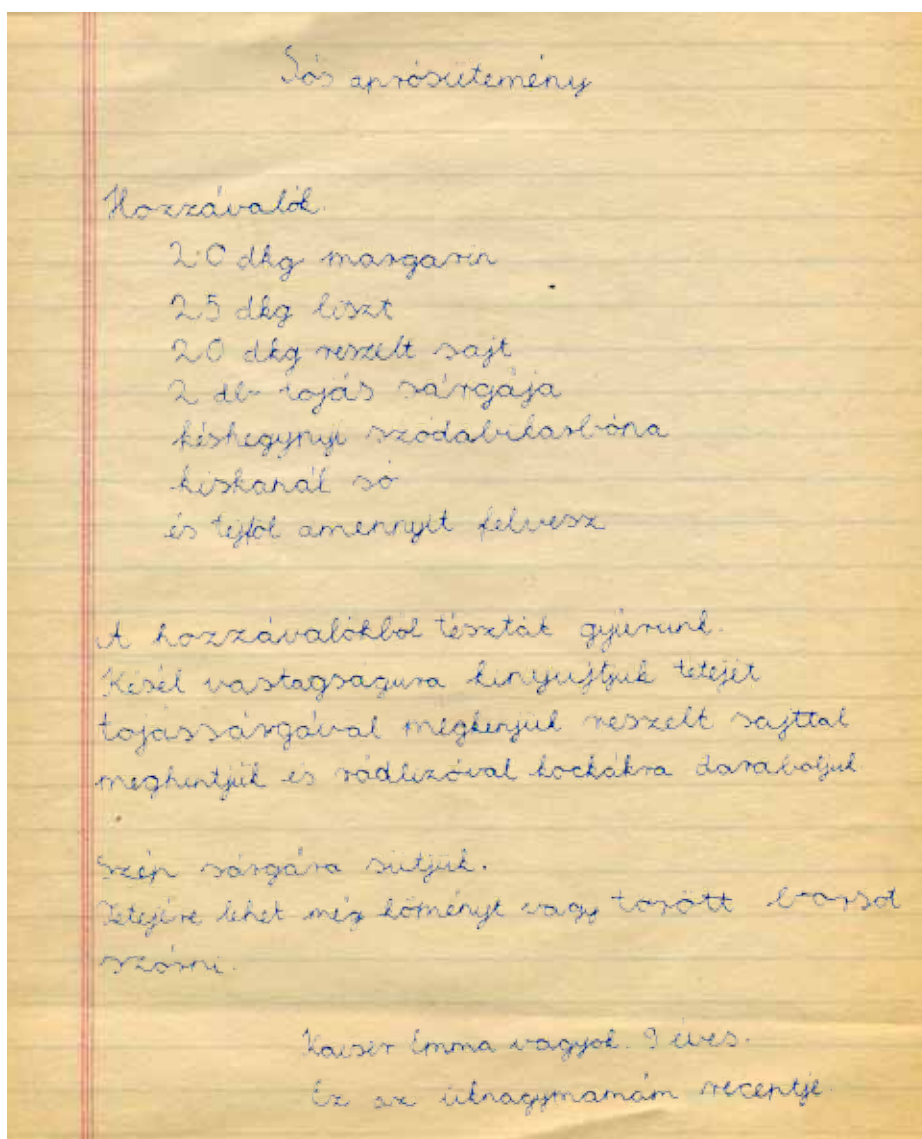 Sós aprósütemény
Hozzávalók.
20 dkg margarin
25 dkg liszt
20 dkg reszelt sajt
2 db tojás sárgája
késhegynyi szódabikarbóna
kiskanál só
és tejföl amennyit felvesz
A hozzávalókból tésztát gyúrunk.
Késél vastagságura kinyujtjuk tetejét
tojássárgával megkenjük reszelt sajttal
meghintjük és rádlizóval kockákra daraboljuk
Szép sárgára sütjük.
Tetejére lehet még köményt vagy törött borsot
szórni.
Kaiser Emma vagyok. 9 éves.
Ez az üknagymamám receptje.